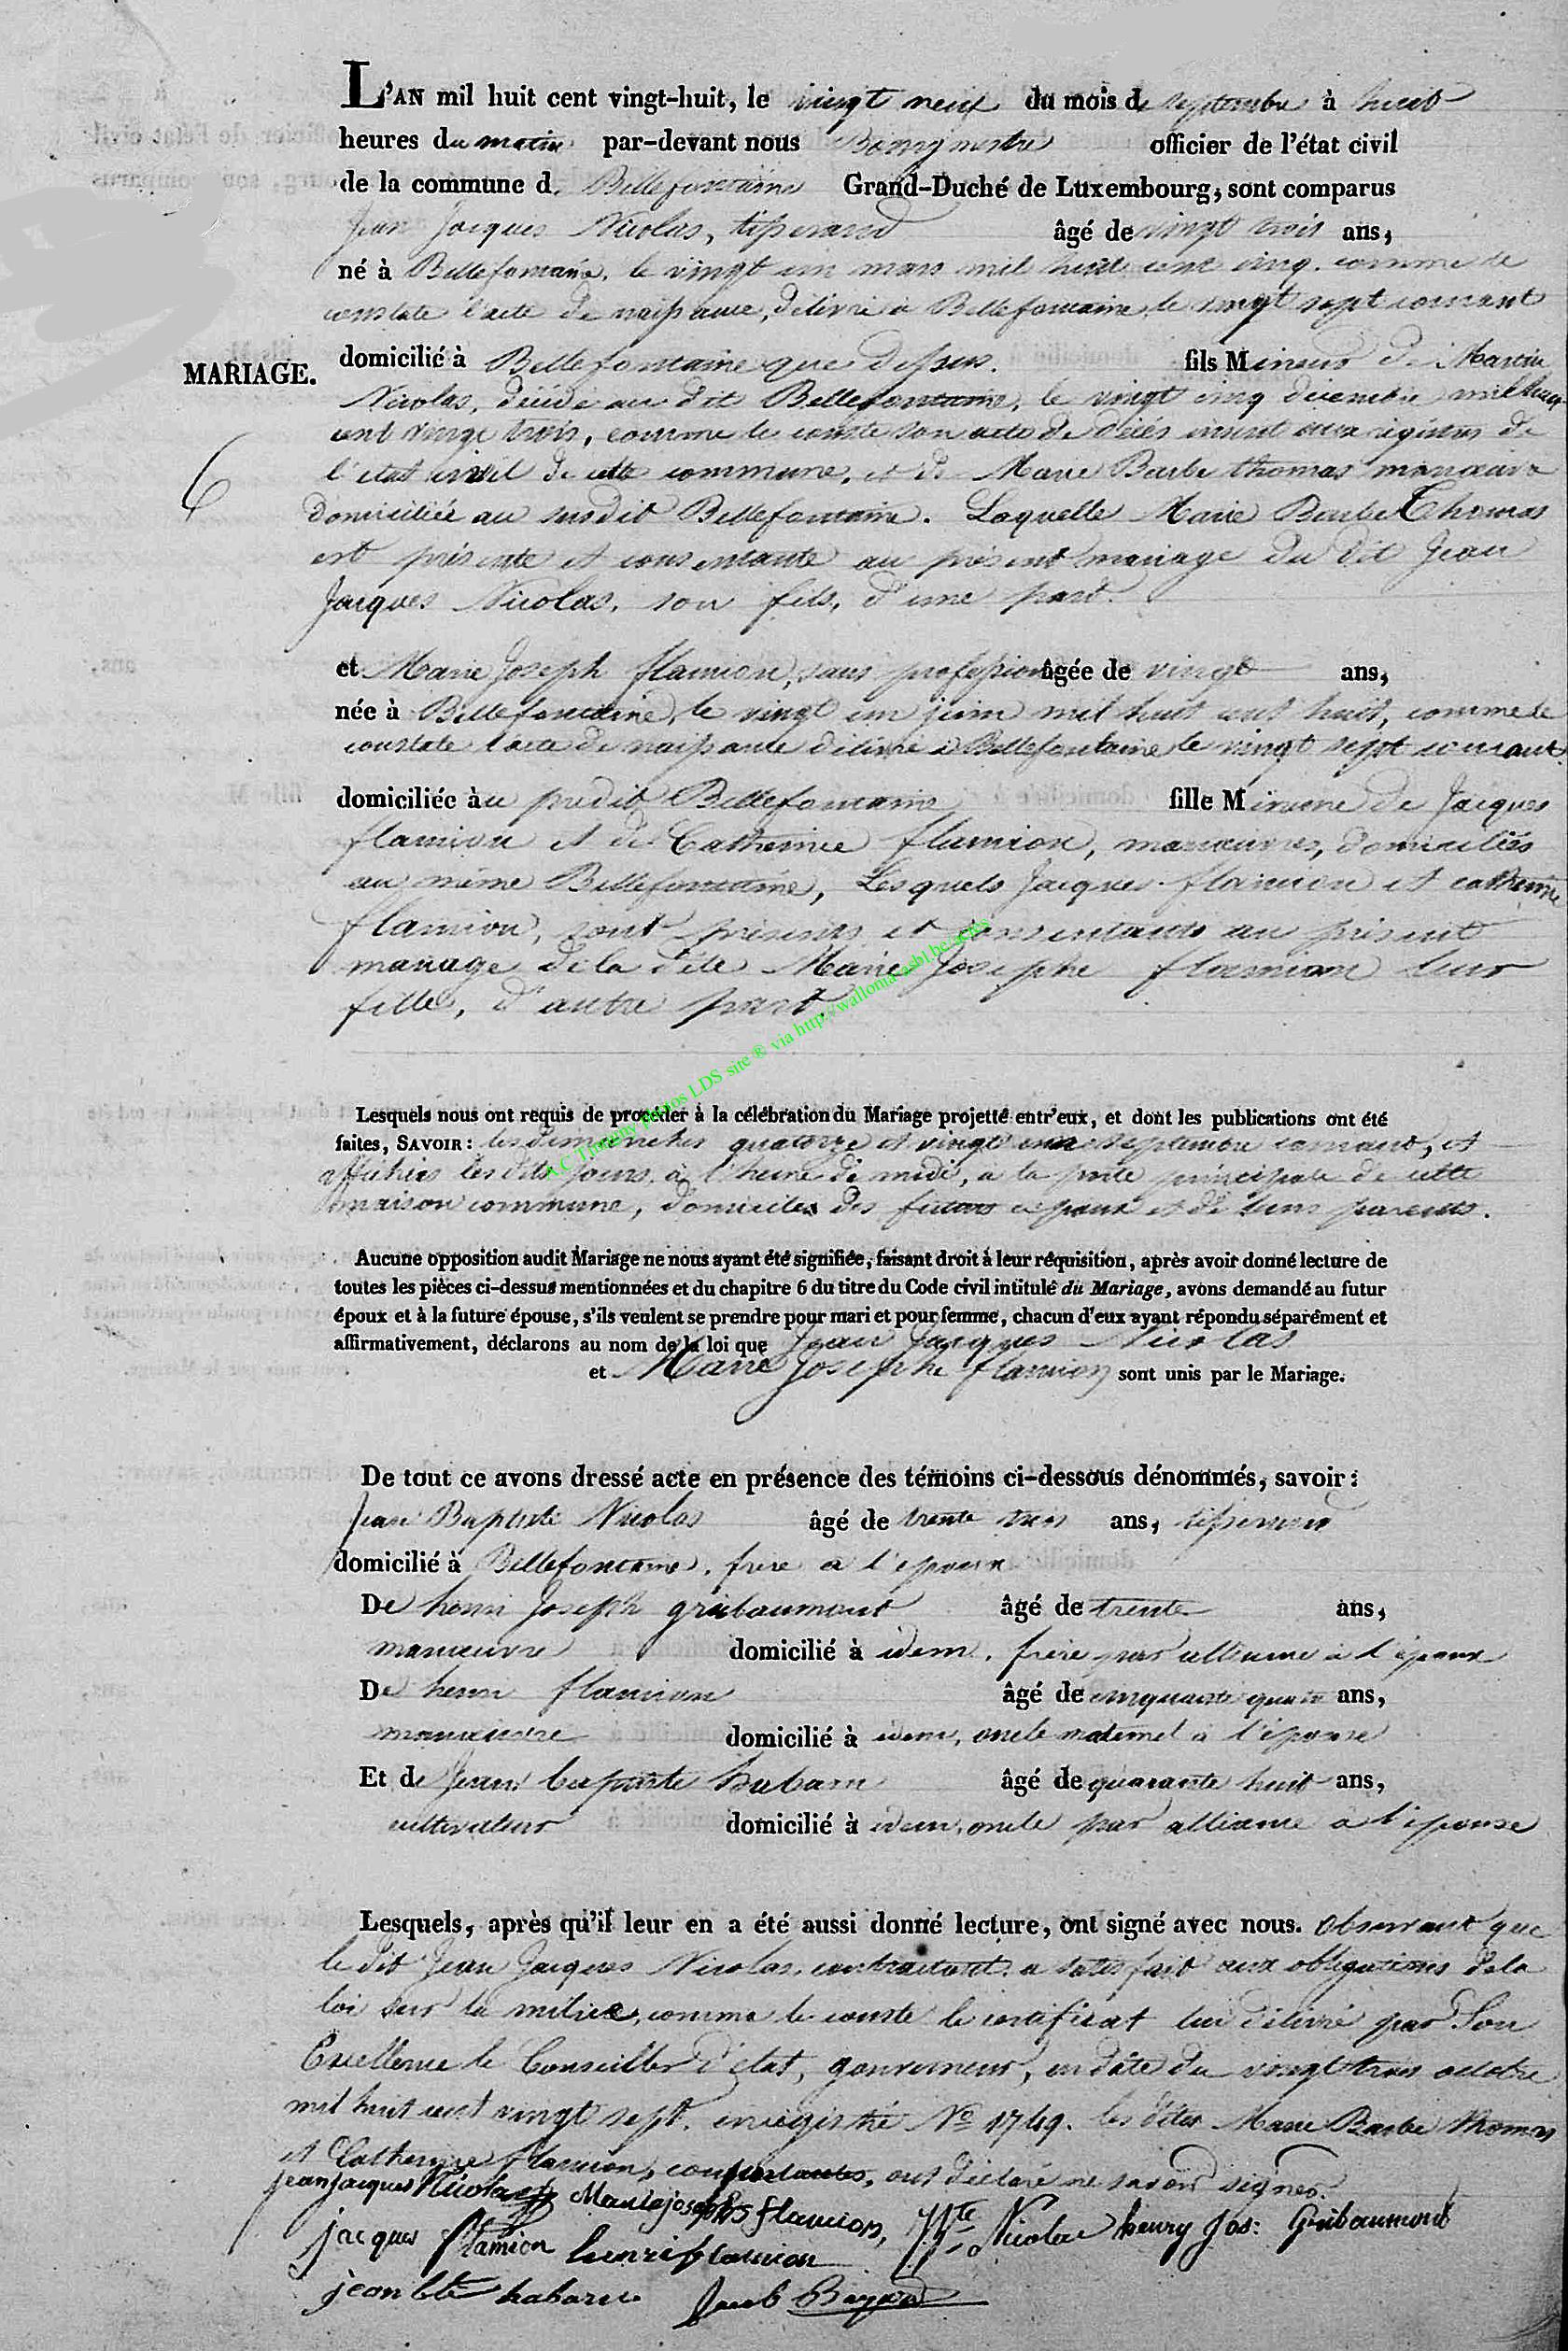 L'AN mil huit cent vingt-huit, le vingt neuf du mois de septembre à huit
heures du matin par-devant nous Bourgmestre officier de l'état civil
de la commune d. Bellefontaine Grand-Duché de Luxembourg, sont comparus
Jean Jacques Nicolas, tisserand âgé de vingt trois ans,
né à Bellefontaine, le vingt un mars mil huit cent cinq. comme le
constate l'acte de naissance, délivré à Bellefontaine, le vingt sept courant
domicilié à Bellefontaine que dessus. fils Mineur de Martin
MARIAGE.
Nicolas, décédé au dit Bellefontaine, le vingt cinq décembre mil huit
cent vingt trois, comme le conste son acte de décès inscrit aux régistres de
l'état civil de cette commune, et de Marie Barbe thomas manœuvre
6
domiciliée au susdit Bellefontaine. Laquelle Marie Barbe Thomas
est présente et consentante au présent mariage du dit Jean
Jacques Nicolas, son fils, d'une part.
et Marie Joseph flamion, sans profession âgée de vingt ans,
née à Bellefontaine, le vingt un juin mil huit cent huit, comme le
constate l'acte de naissance délivré à Bellefontaine le vingt sept courant.
domiciliée àu predit Bellefontaine fille Mineure de Jacques
flamion et de Catherine flamion, manœuvres, domiciliés
au même Bellefontaine, Lesquels Jacques flamion et catherine
flamion, sont présents et consentants au présent
mariage de la dite Marie Josephe flamion leur
fille, d'autre part.
A.C Tintigny photos LDS site ® via http://wallonia-asbl.be/actes
Lesquels nous ont requis de procéder à la célébration du Mariage projetté entr'eux, et dont les publications ont été
faites, SAVOIR: les dimanches quatorze et vingt un septembre courant, et
affichées les dits jours, à l'heure de midi, a la porte principale de cette
maison commune, domiciles des futurs epoux et de leurs parents.
Aucune opposition audit Mariage ne nous ayant été signifiée, faisant droit à leur réquisition, après avoir donné lecture de
toutes les pièces ci-dessus mentionnées et du chapitre 6 du titre du Code civil intitulé du Mariage, avons demandé au futur
époux et à la future épouse, s'ils veulent se prendre pour mari et pour femme, chacun d'eux ayant répondu séparément et
affirmativement, déclarons au nom de la loi que Jean Jacques Nicolas
et Marie Josephe flamion sont unis par le Mariage.
De tout ce avons dressé acte en présence des témoins ci-dessous dénommés, savoir:
Jean Baptiste Nicolas âgé de trente trois ans, tisserand
domicilié à Bellefontaine, frere a l'epoux
De henri Joseph gribaumont âgé de trente ans,
manœuvre domicilié à idem, frère par alliance à l'époux
De henri flamion âgé de cinquante quatre ans,
manœuvre domicilié à idem, oncle maternel à l'épouse
Et de Jean baptiste habaru âgé de quarante huit ans,
cultivateur domicilié à idem, oncle par alliance a l'épouse
Lesquels, après qu'il leur en a été aussi donné lecture, ont signé avec nous. Observant que
le dit Jean Jacques Nicolas, contractant, a satisfait aux obligations de la
loi sur la milice, comme le conste le certificat lui délivré par Son
Excellence le Conseiller d'état, gouverneur, en date du vingt trois octobre
mil huit cent vingt sept, enrégistré No 1749. les dites Marie Barbe thomas
et Catherine flamion, ont déclaré ne savoir signer.
jean jacques Nicolas Marie josephe flamion, Nicolas henry Jos: Gribaumont
jacques flamion henri flamion
jean bte habaru Jacob